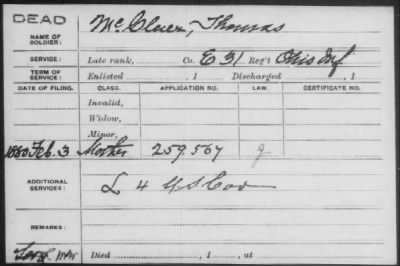 DEAD
NAME OF SOLDIER: McCluer, Thomas
SERVICE: Late rank, Co. E 31 Reg't Ohio Inf
TERM OF SERVICE: Enlisted , 1 Discharged , 1
DATE OF FILING. CLASS. APPLICATION NO. LAW. CERTIFICATE NO.
Invalid,
Widow,
Minor,
1880 Feb. 3 Mother 259.567 g
ADDITIONAL SERVICES: L 4 U.S. Cav
REMARKS:
Died , 1 , at